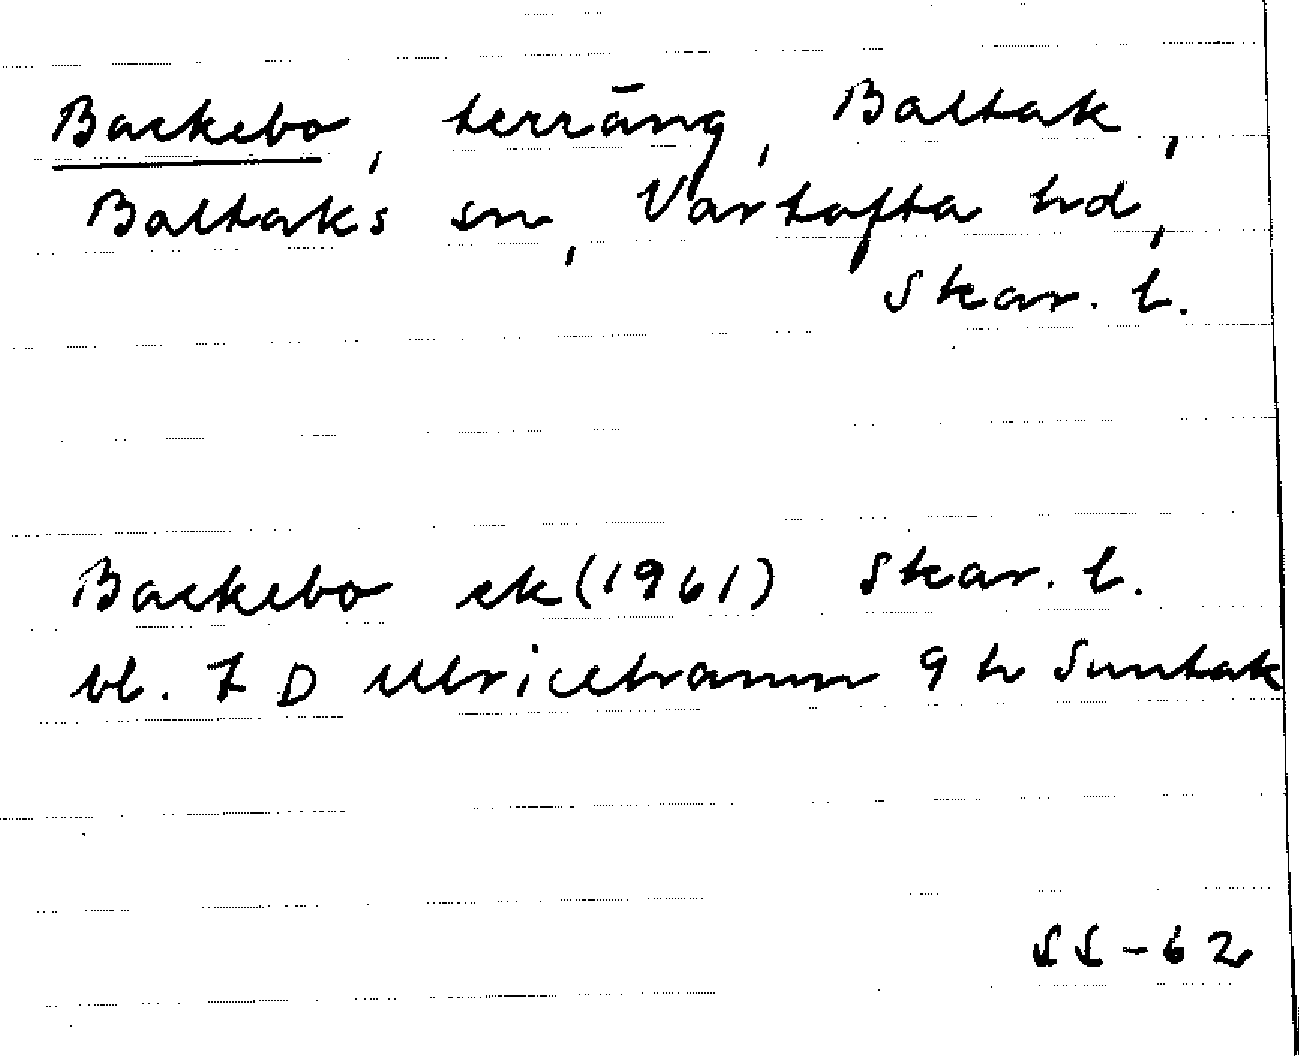 Backebo, terräng, Baltak,
Baltaks sn, Vartofta hd,
Skar. l.
Backebo ek (1961) Skar. l.
bl. 7 D Ulricehamn 9 h Suntak
SS-62